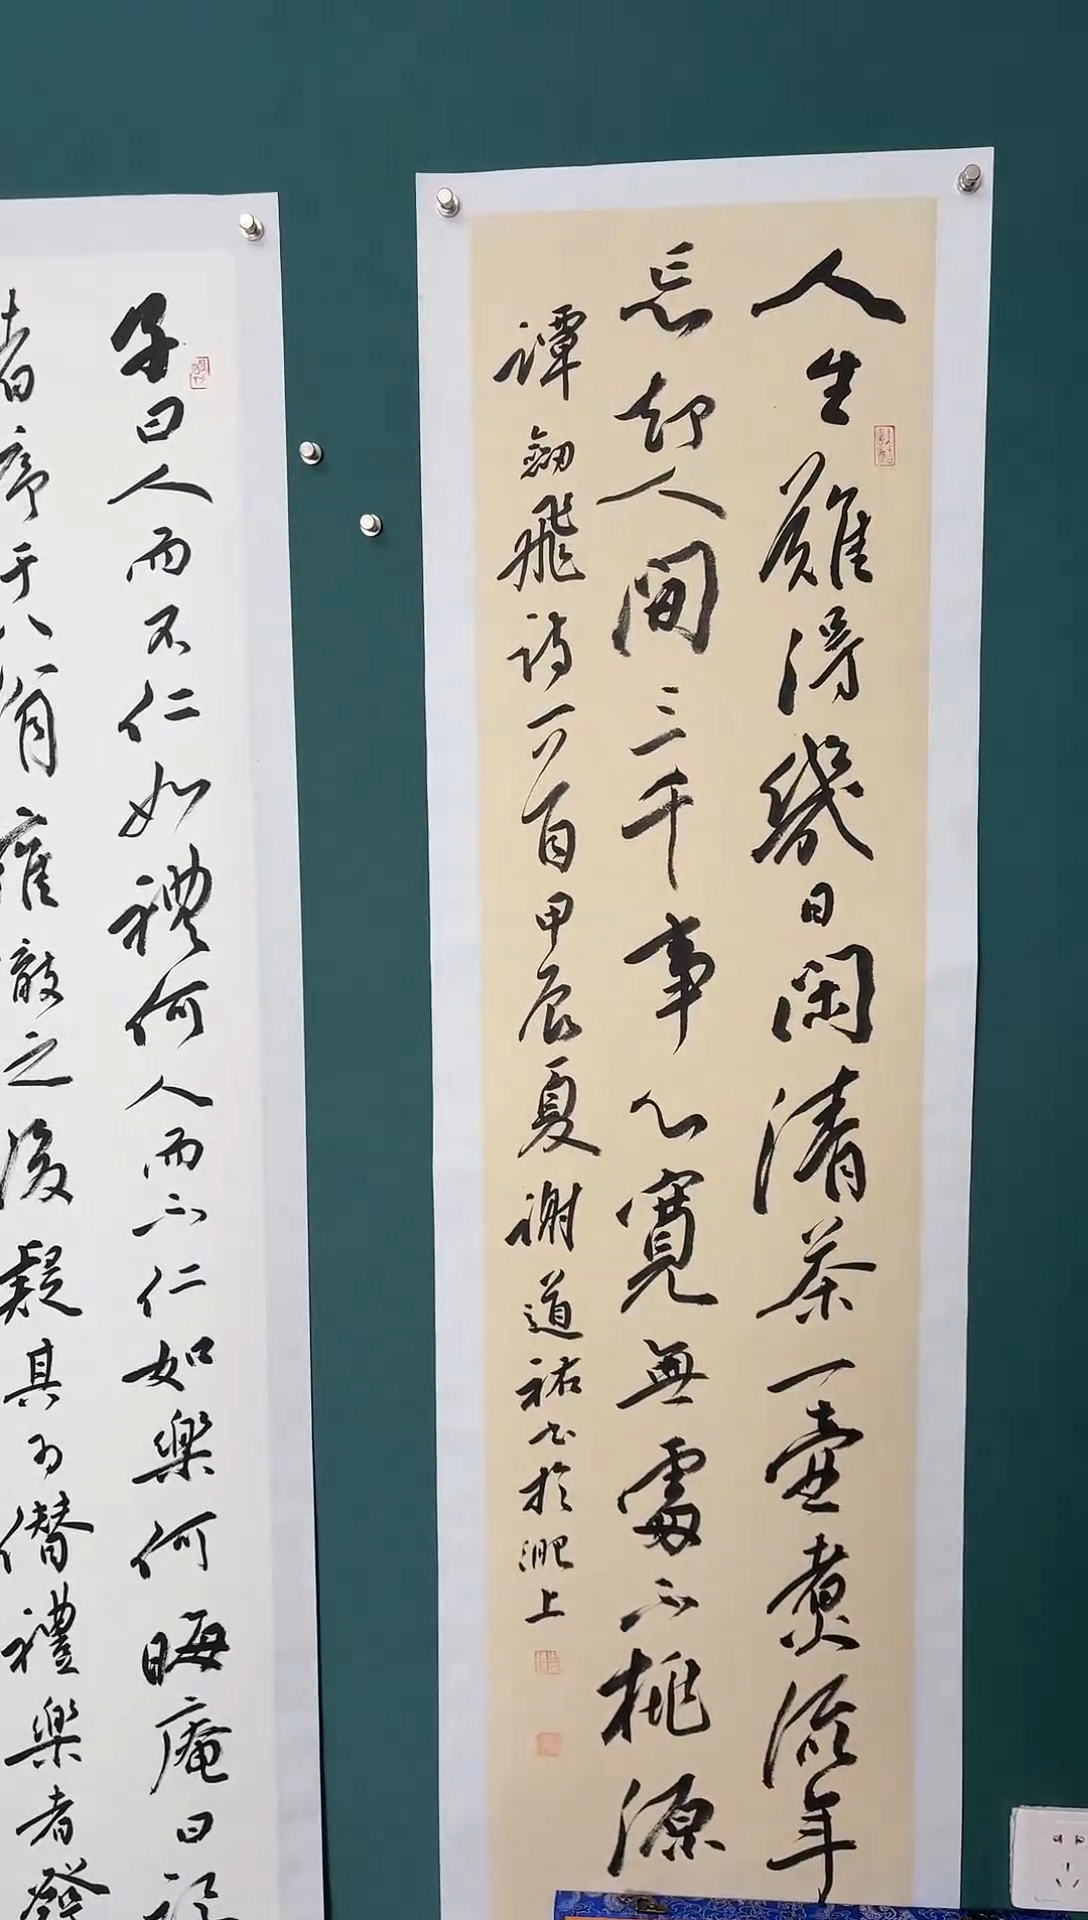 人生難得幾日閑清茶一壺煮流年
忘却人間三千事心寬無處不桃源
譚劍飛詩一首甲辰夏謝道祐書於淝上
子曰人而不仁如禮何人而不仁如樂何晦庵曰
者序于八佾雍徹之後疑其為僭禮樂者發